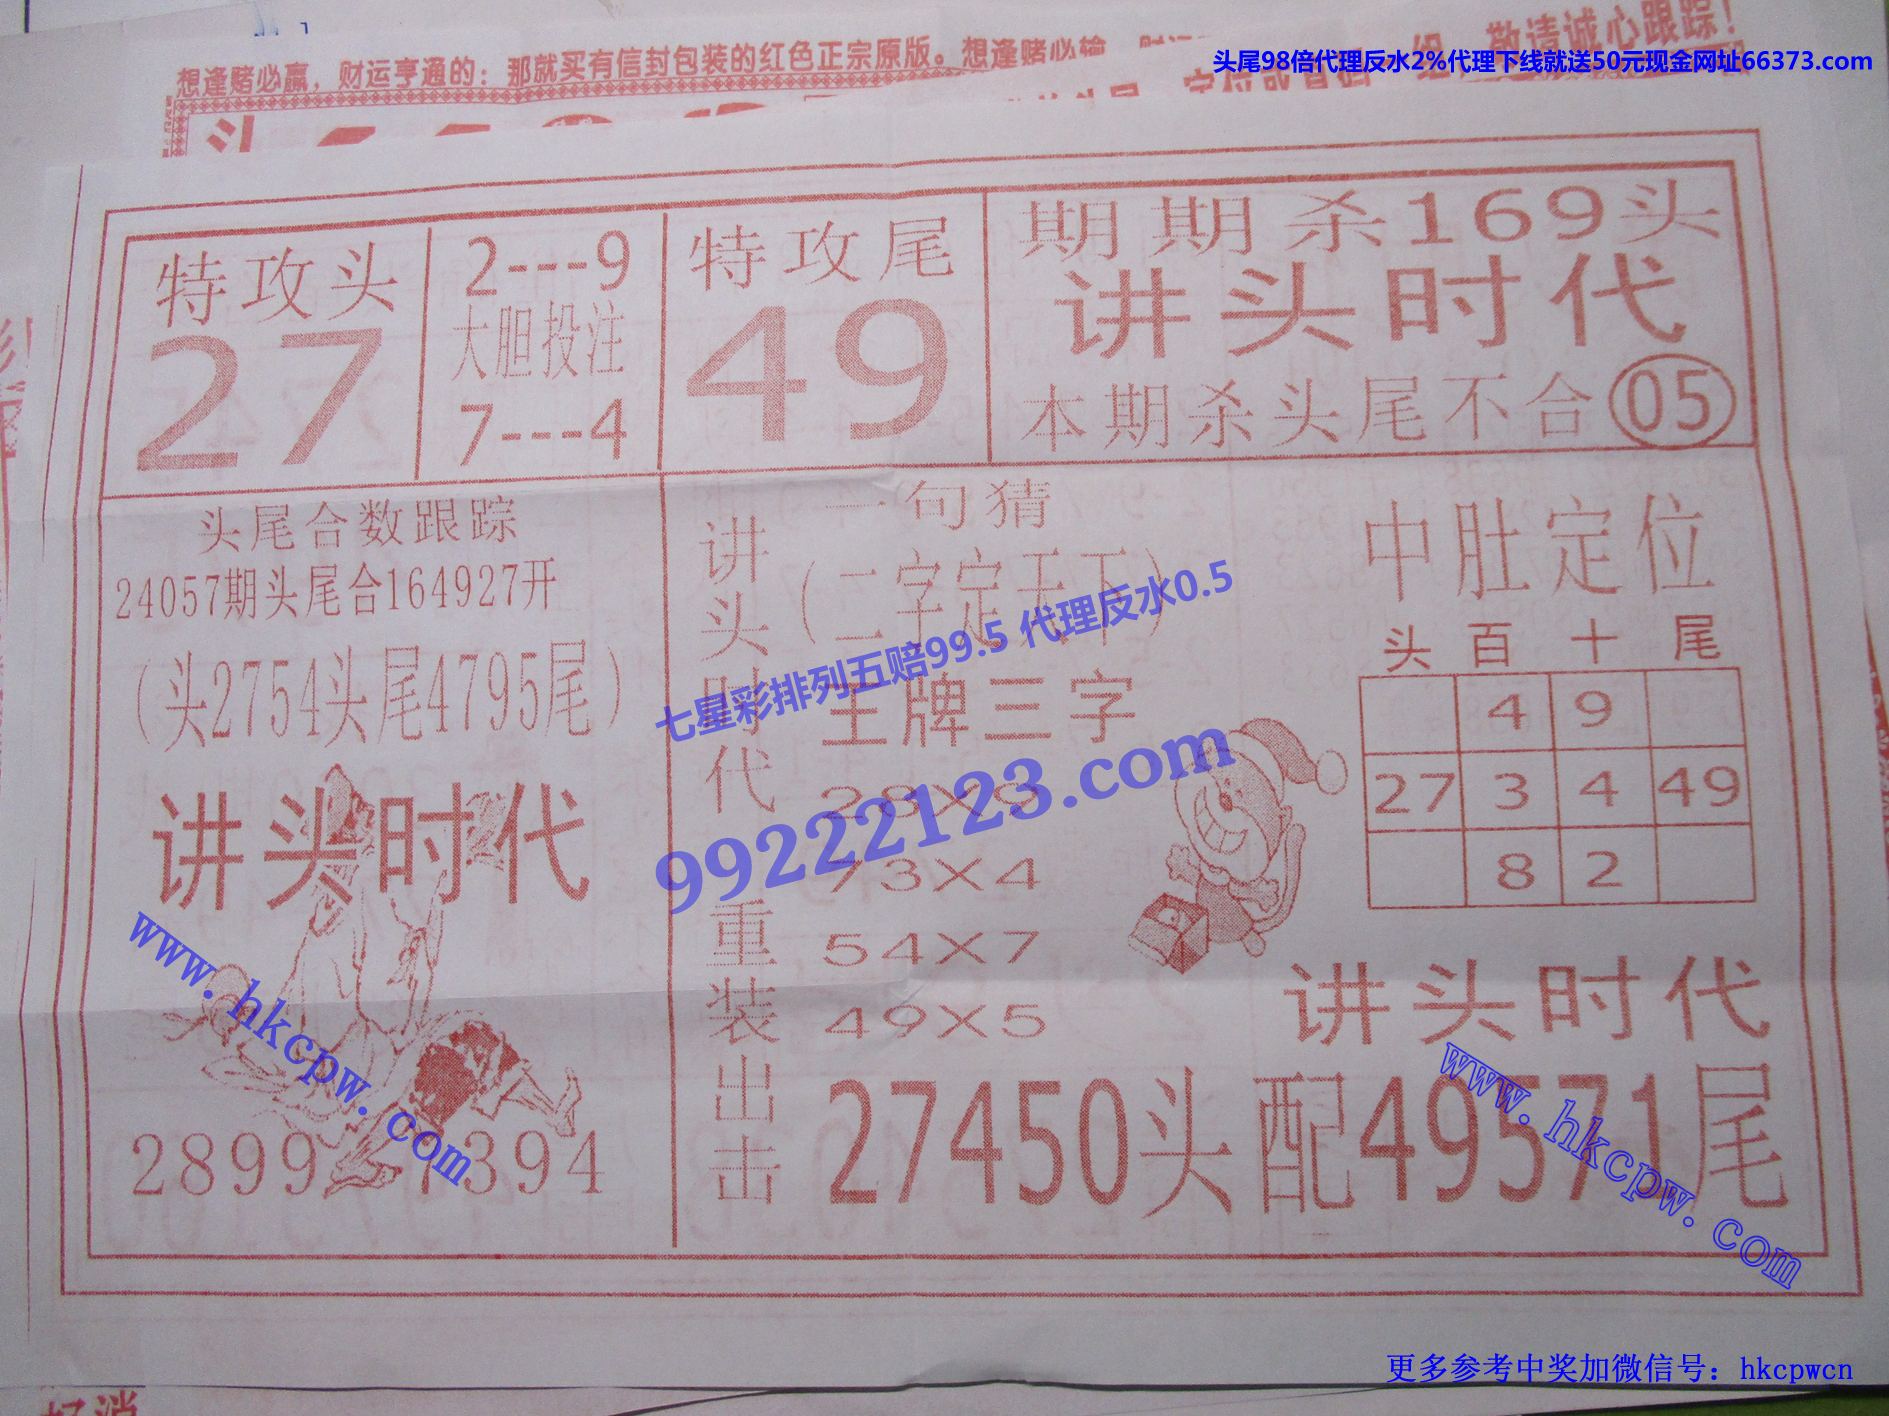 头尾98倍代理反水2%代理下线就送50元现金网址66373.com
想逢赌必赢，财运亨通的：那就买有信封包装的红色正宗原版。想逢赌必输
敬请诚心跟踪！
特攻头
27
2---9
大胆投注
7---4
特攻尾
49
期期杀169头
讲头时代
本期杀头尾不合05
头尾合数跟踪
24057期头尾合164927开
（头2754头尾4795尾）
讲头时代
2899 7394
讲头时代重装出击
一句猜
（二字定天下）
王牌三字
28X9
73X4
54X7
49X5
中肚定位
头 百 十 尾
4 9
27 3 4 49
8 2
讲头时代
27450头配49571尾
七星彩排列五赔99.5 代理反水0.5
99222123.com
www.hkcpw.com
www.hkcpw.com
更多参考中奖加微信号：hkcpwcn